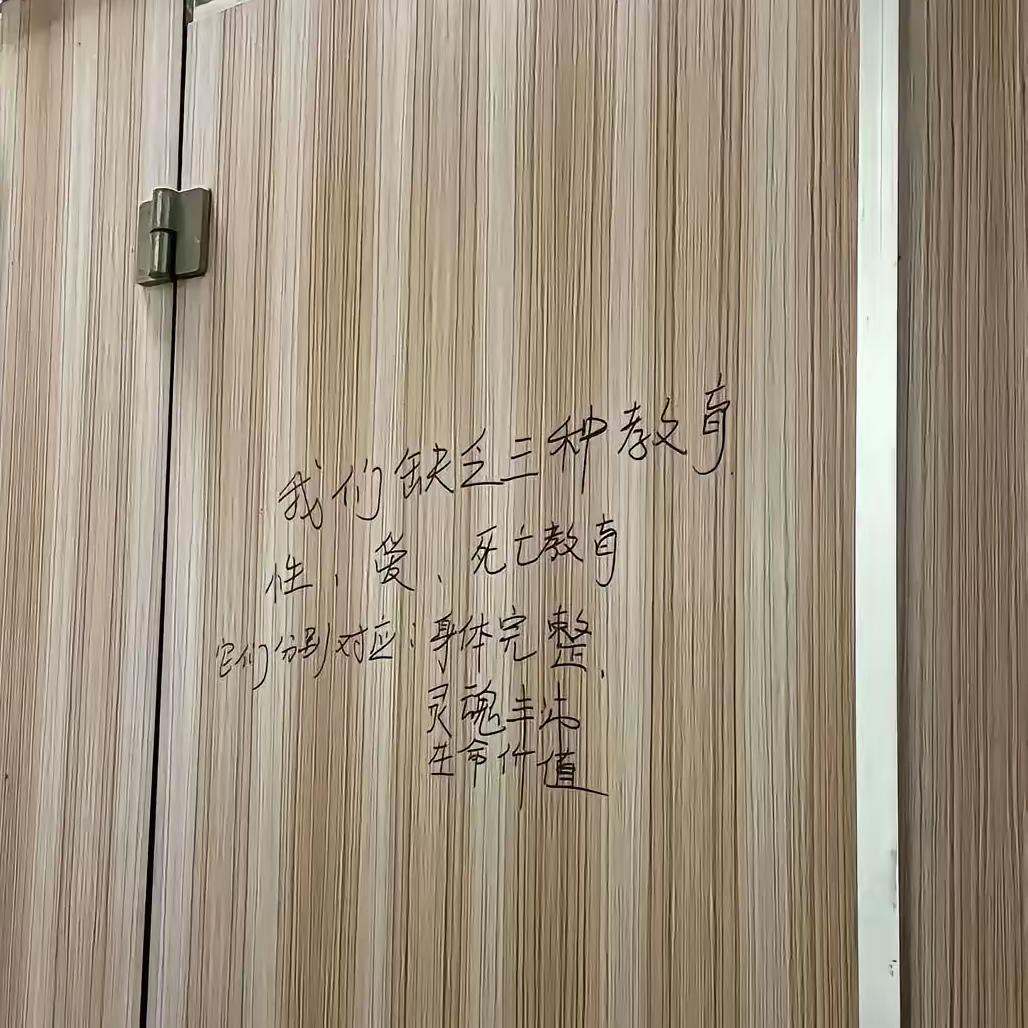 我们缺乏三种教育.
性、爱、死亡教育
它们分别对应:身体完整、
灵魂丰沛
生命价值